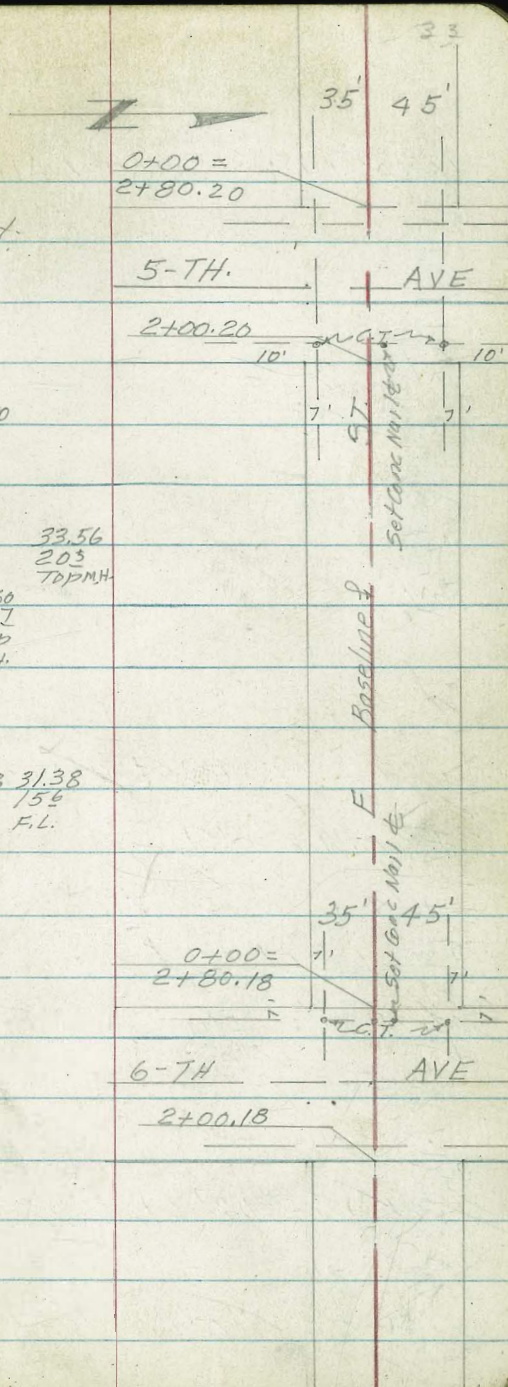 33
35' 45'
0+00 =
2+80.20
5-TH. AVE
2+00.20
C.T.
10' 10'
7' 7'
ST.
Set Conc Nail &
33.56
20⁵
Top M.H.
Baseline
31.38
15⁶
F.L.
F
Set Conc Nail
35' 45'
0+00=
2+80.18
7' 7'
7' 7'
C.T.
6-TH AVE
2+00.18